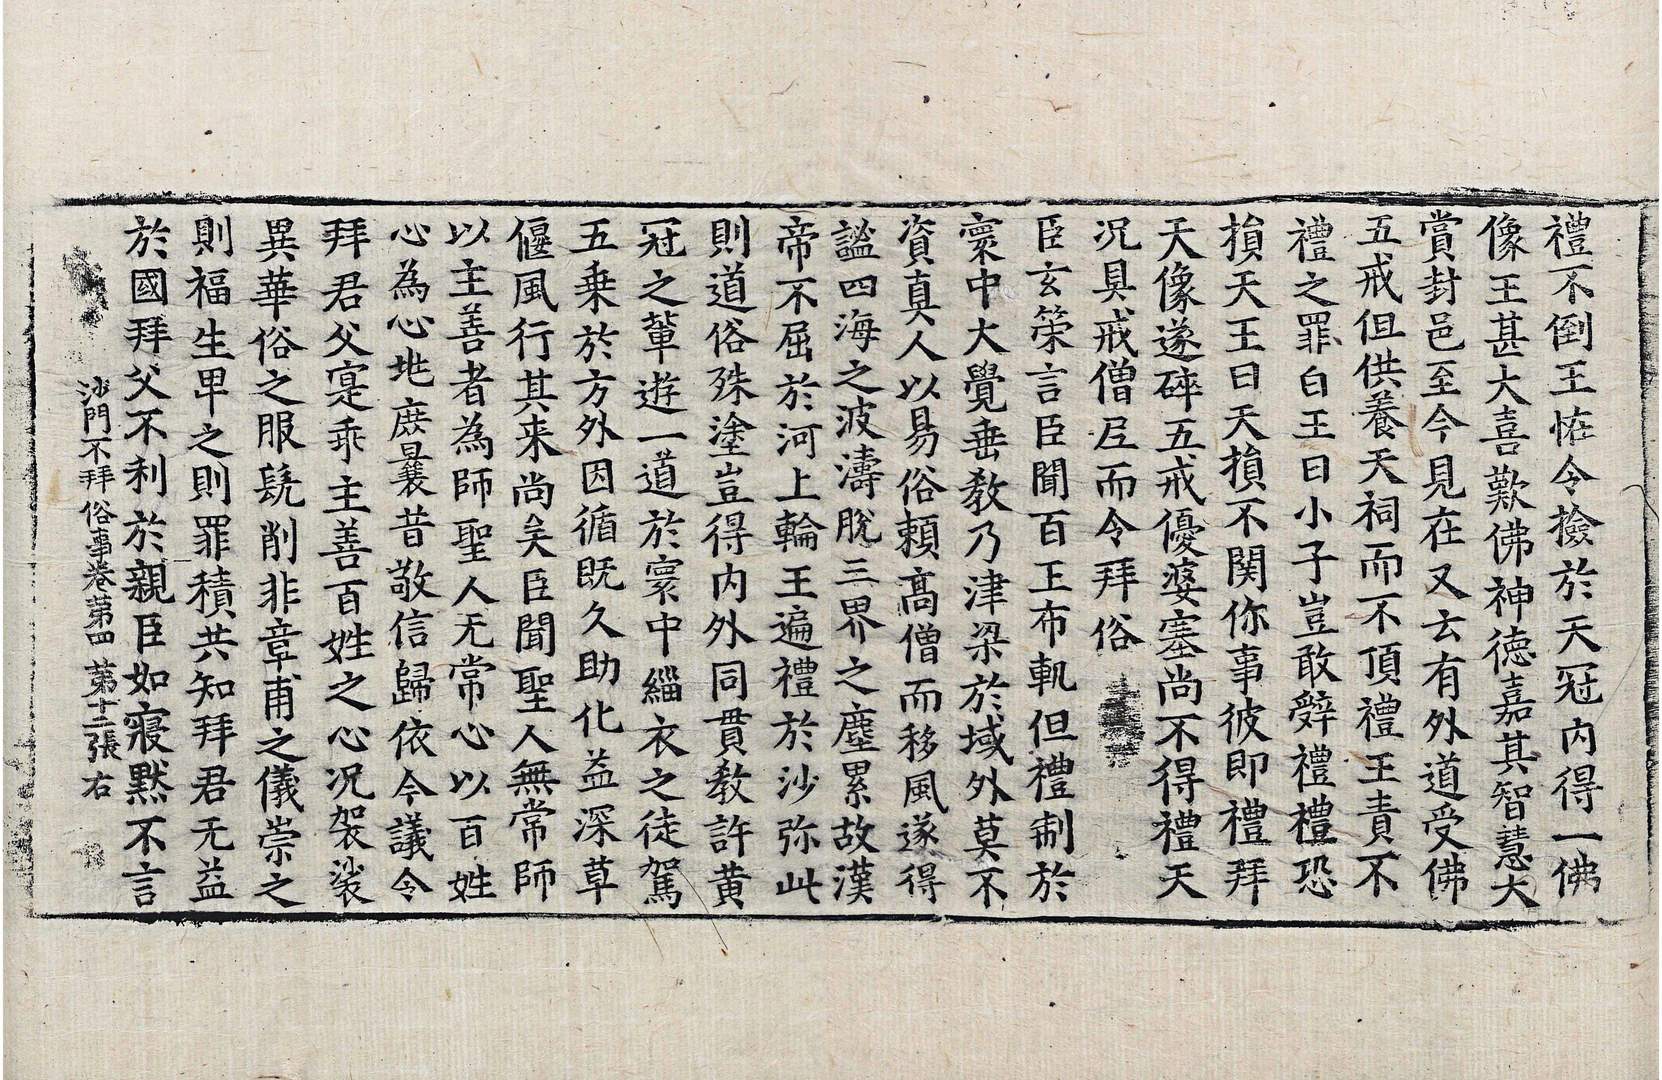 禮不倒王恠令撿於天冠內得一佛
像王甚大喜歎佛神德嘉其智慧大
賞封邑至今見在又云有外道受佛
五戒但供養天祠而不頂禮王責不
禮之罪白王曰小子豈敢辤禮禮恐
損天王曰天損不関你事彼即禮拜
天像遂碎五戒優婆塞尚不得禮天
况具戒僧尼而令拜俗
臣玄筞言臣聞百王布軌但禮制於
寰中大覺垂教乃津梁於域外莫不
資真人以易俗頼髙僧而移風遂得
謐四海之波濤脫三界之塵累故漢
帝不屈於河上輪王遍禮於沙弥此
則道俗殊塗豈得內外同貫教許黃
冠之軰遊一道於寰中緇衣之徒駕
五乗於方外因循既久助化益深草
偃風行其来尚矣臣聞聖人無常師
以主善者為師聖人无常心以百姓
心為心地庶曩昔敬信歸依今議令
拜君父寔乖主善百姓之心况袈裟
異華俗之服髡削非章甫之儀崇之
則福生卑之則罪積共知拜君无益
於國拜父不利於親臣如寢黙不言
沙門不拜俗事卷第四 第十二張 右